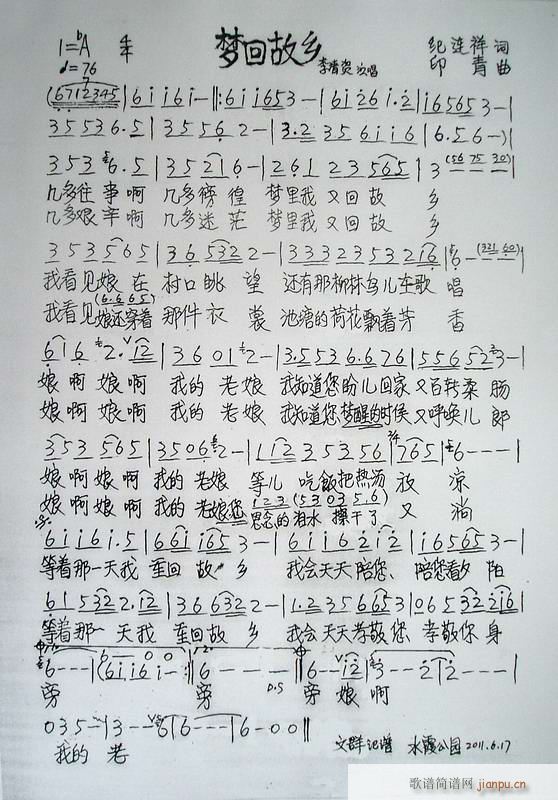 1=ᵇA 梦回故乡 纪连祥 词
♩=76 李增贺 演唱 印青 曲
(6712345|6 i i 6 i -‖:6 i i 6 5 3 -|6 i 2 6 i . 2|i 6 5 6 5 3 -|
3 5 5 3 6 . 5|3 5 5 6 2 -|3.2 3 5 6 i i 6|6 . 5 6 -)|
3 5 3 6 . 5|3 5 2 1 6 -|2 6 1 2 3 5 6 5|3 (56 75 30)
几多往事啊 几多彷徨 梦里我又回故 乡
几多艰辛啊 几多迷茫 梦里我又回故 乡
3 5 3 5 6 5|3 6 5 3 2 2 -|3 3 3 2 3 5 3 2 1 6|6 - (321 60)|
我看见娘在 村口眺 望 还有那柳林鸟儿在歌 唱
我看见(6.6 6 5)娘还穿着 那件衣 裳 池塘的荷花飘着芳 香
6 1 6 2 . 1 2|3 6 0 1 2 -|3.5 5 3 6.6 7 6|5 5 6 5 2 3 -|
娘啊娘啊 我的老娘 我知道您盼儿回家 又百转柔肠
娘啊娘啊 我的老娘 我知道您梦醒的时候 又呼唤儿郎
3 5 3 5 6 5|3 5 0 6 2 -|1 1 2 3 5 3 5 6|7 6 5|6 - - -|
娘啊娘啊 我的老娘 等儿吃饭把热汤 放 凉
娘啊娘啊 我的老娘您 1 2 3 (5 3 0 3 5 . 6)思念的泪水 擦干了 又 淌
6 i i 6 i . 5|6 6 i i 6 5 3 -|6 i i 6 2 i 2|i 6 5 6 5 3 -|
等着那一天我 重回故乡 我会天天陪您、陪您看夕 阳
6 1 5 3 2 2 . 1 2|3 6 6 3 2 2 -|1.2 3 5 6 6 5 3|0 6 5 3 2 2 1 6|
等着那一 天我 重回故 乡 我会天天孝敬您 孝敬你身
6 - - -|(6 i i 6 i -:‖6 - - -‖6 - - i 2|3 - - 2|2 - - -|
旁 旁 D.S 旁 娘啊
0 3 5 -|3 - - 6|6 - - -|6 - 0 0‖
我的 老 文群记谱 水霞公园 2011.6.17
歌谱简谱网
jianpu.cn